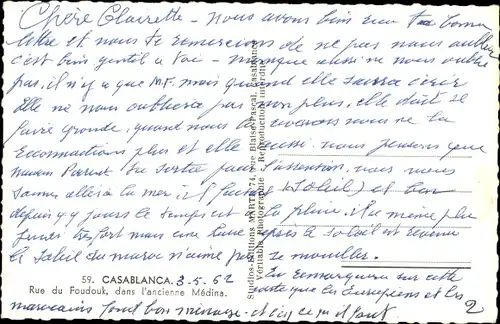 Chère Clairette – nous avons bien reçu ta bonne
lettre et nous te remercions de ne pas nous oublier
c'est bien gentil a toi – manque aussi ne nous oublie
pas, il n'y a que M.F. mais quand elle saura écrire
elle ne nous oubliera pas non plus, elle doit se
faire grande, quand nous la reverrons nous ne la
reconnaîtrons plus et elle aussi. nous pensons que
de sortie pour l'ascension, nous nous
sommes allés à la mer, il faisait (soleil) et
depuis 4 jours le temps est à la pluie. il a même plu
très fort mais une heure après le soleil est revenu
le soleil du maroc n'aime pas se mouiller.
59. CASABLANCA. 3-5-62
Rue du Foudouk, dans l'ancienne Médina.
Tu remarqueras sur cette
carte que les Européens et les
marocains font bon ménage – et
2
Studios-Editions MARTY, 74, rue Blaise-Pascal, Casablanca
Véritable photographie - Reproduction interdite